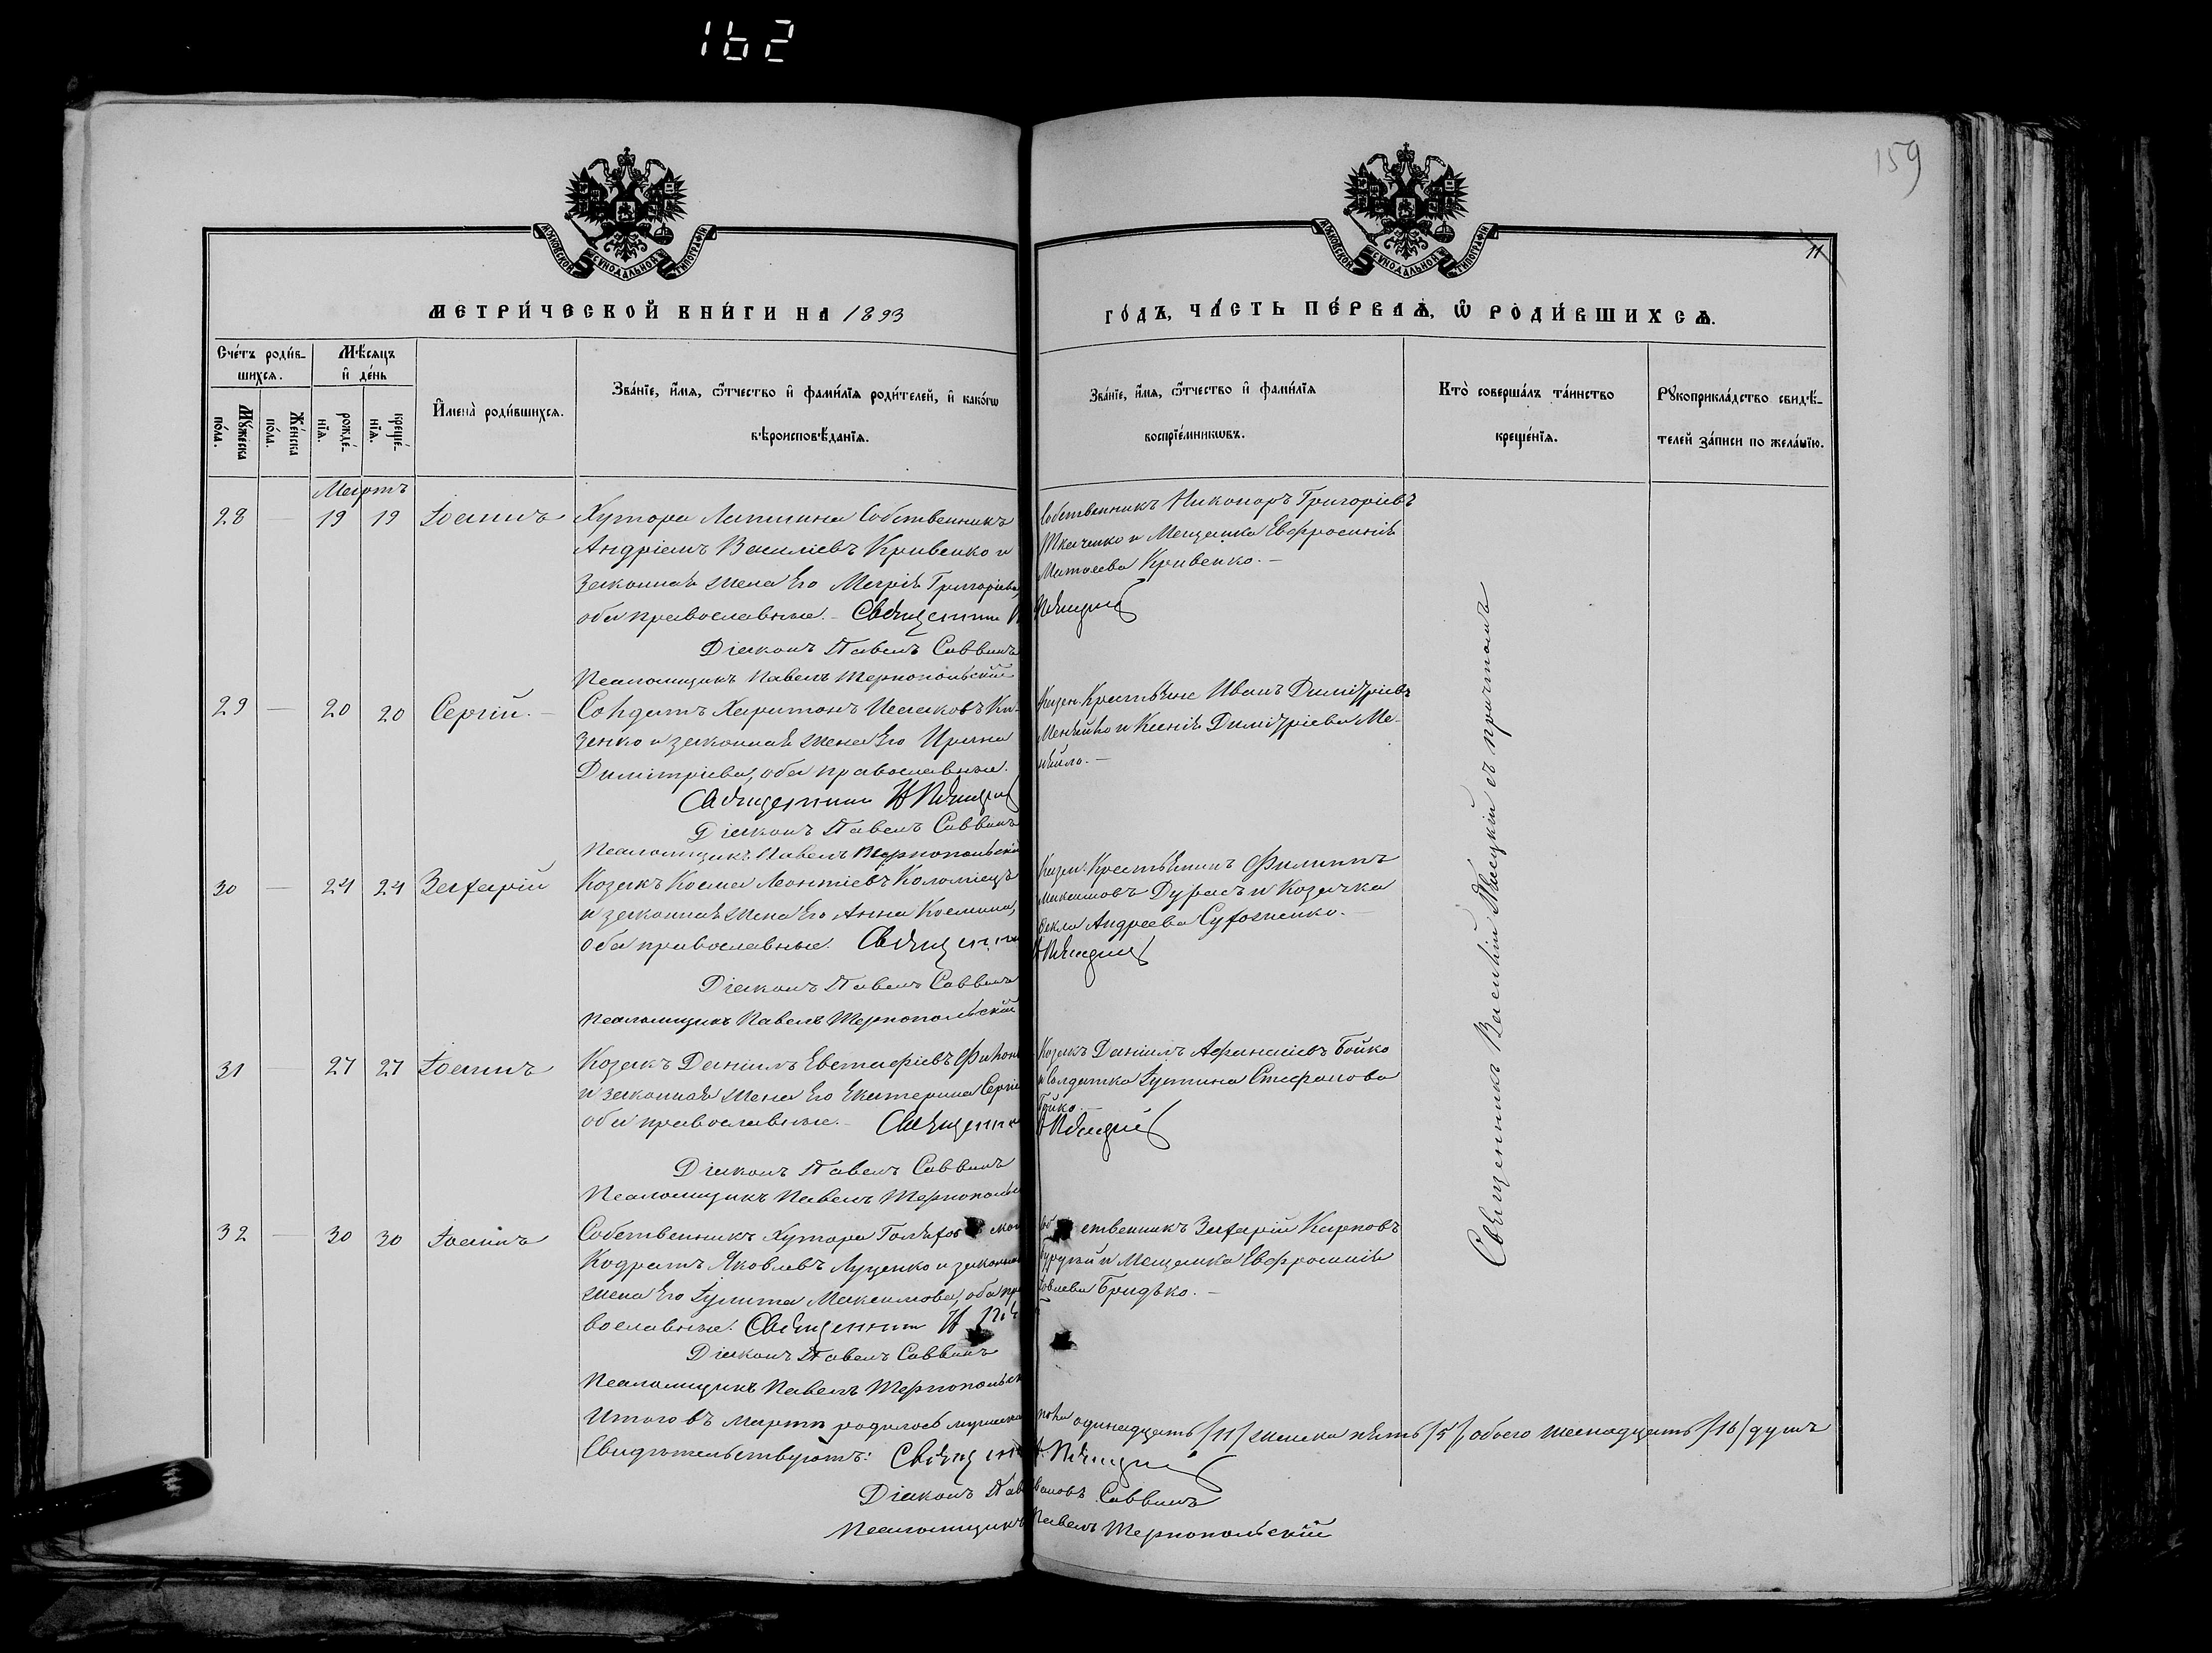 162
159
11
МОСКОВСКОЙ СѴНОДАЛЬНОЙ ТИПОГРАФІИ
МОСКОВСКОЙ СѴНОДАЛЬНОЙ ТИПОГРАФІИ
МЕТРИ́ЧЕСКОЙ КНИ́ГИ НА 1893
ГО́ДЪ, ЧА́СТЬ ПЕ́РВАѦ, Ѽ РОДИ́ВШИХСѦ.
Сче́тъ роди́в-
шихсѧ.
Мꙋ́жеска по́ла.
Же́нска по́ла.
Мѣ́сѧцъ
и҆ де́нь
рожде́-
нїѧ.
креще́-
нїѧ.
И҆мена̀ роди́вшихсѧ.
Зва́нїе, и҆́мѧ, ѻ҆́тчество и҆ фами́лїѧ роди́телей, и҆ како́гѡ
вѣроисповѣ́данїѧ.
Зва́нїе, и҆́мѧ, ѻ҆́тчество и҆ фами́лїѧ
воспрїе́мникѡвъ.
Кто̀ соверша́лъ та́инство
креще́нїѧ.
Рꙋкоприкла́дство свидѣ́-
телей за́писи по жела́нїю.
Мартъ
28 — 19 19 Іоаннъ
Хутора Лапшина Собственникъ
Андріанъ Василіевъ Кривенко и
законная жена его Марія Григоріева,
оба православные. – Священник
Діаконъ Павелъ Саввинъ
Псаломщикъ Павелъ Тернопольскій
Собственникъ Никаноръ Григоріевъ
Ткаченко и Мещанка Евфросинія
Матѳеева Кривенко. –
29 — 20 20 Сергій. –
Солдатъ Харитонъ Исааковъ Ки-
зенко и законная жена его Ирина
Димитріева, оба православные.
Священник Н
Діаконъ Павелъ Саввинъ
Псаломщикъ Павелъ Тернопольскій
Казен. Крестьяне Иванъ Димитріевъ
и Ксенія Димитріева Ме-
30 — 24 24 Захарій
Козакъ Косма Леонтіевъ Коломіецъ
и законная жена его Анна Космина,
оба православные. Священник
Діаконъ Павелъ Саввинъ
Псаломщикъ Павелъ Тернопольскій
Казен. Крестьянинъ Филиппъ
Максимовъ Дурасъ и Козачка
Ѳекла Андреева
31 — 27 27 Іоаннъ
Козакъ Даніилъ Евстафіевъ Филон
и законная жена его Екатерина Сергіе
оба православные. – Священник
Діаконъ Павелъ Саввинъ
Псаломщикъ Павелъ Тернополь
Козакъ Даніилъ Афанасіевъ Бойко
и Солдатка Іустина Стефанова
Бойко. –
32 — 30 30 Іоаннъ
Собственникъ Хутора
Кодратъ Яковлевъ Луценко и законная
жена его Іулита Максимова, оба пра
вославные. Священник Н
Діаконъ Павелъ Саввинъ
Псаломщикъ Павелъ Тернопольск
Собственникъ Захарій Карповъ
и Мещанка Евфросинія
Іовлева Бридько. –
Священникъ Василій с причтомъ
Итого въ мартѣ родилось мужска пола одинадцать /11/ женска пять /5/, обоего шеснадцать /16/ душъ
Свидѣтельствуютъ: Священник
Діаконъ Павелъ Ивановъ Саввинъ
Псаломщикъ Павелъ Тернопольскій